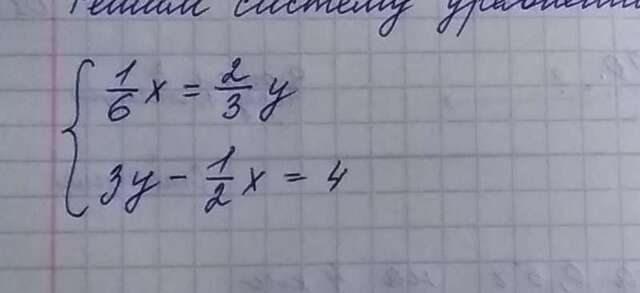 Решим систему уравнений
{ 1/6 x = 2/3 y
3y - 1/2 x = 4